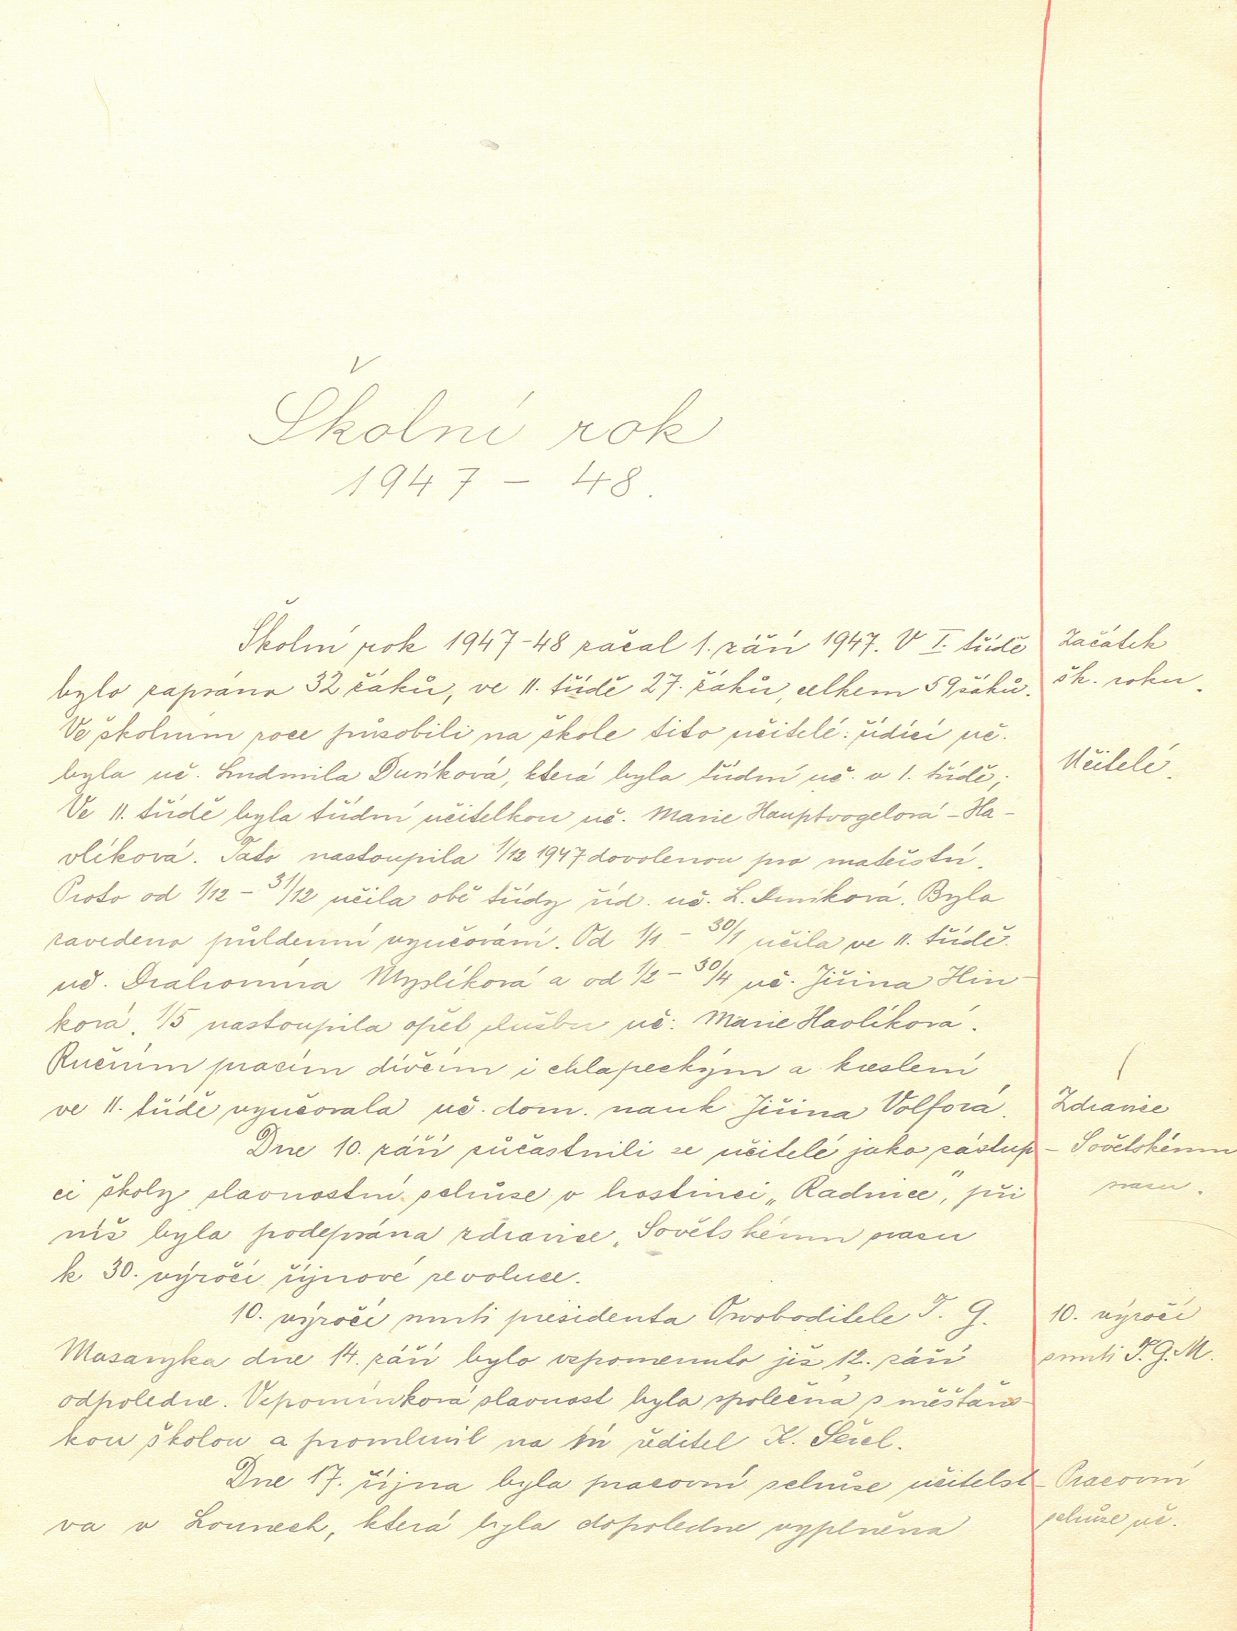 Školní rok
1947 – 48.
Školní rok 1947-48 začal 1. září 1947. V I. třídě
bylo zapsáno 32 žáků, ve II. třídě 27. žáků, celkem 59 žáků.
Začátek
šk. roku.
Ve školním roce působili na škole tito učitelé: řídící uč.
byla uč. Ludmila Duníková, která byla třídní uč. v I. třídě;
Učitelé.
Ve II. třídě byla třídní učitelkou uč. Marie Hauptvogelová – Ha-
vlíková. Tato nastoupila 1/12 1947 dovolenou pro mateřství.
Proto od 1/12 – 31/12 učila obě třídy říd. uč. L. Duníková. Byla
zavedeno půldenní vyučování. Od 1/1 – 30/1 učila ve II. třídě
uč. Drahomíra Myslíková a od 1/2 – 30/4 uč. Jiřina Hin-
ková. 1/5 nastoupila opět službu uč. Marie Havlíková.
Ručním pracím dívčím i chlapeckým a kreslení
ve II. třídě vyučovala uč. dom. nauk Jiřina Volfová.
Dne 10. září zúčastnili se učitelé jako zástup-
ci školy slavnostní schůze v hostinci „Radnice", při
níž byla podepsána zdravice „Sovětskému svazu
k 30. výročí říjnové revoluce.
Zdravice
Sovětskému
svazu.
10. výročí smrti presidenta Osvoboditele T. G.
Masaryka dne 14. září bylo vzpomenuto již 12. září
odpoledne. Vzpomínková slavnost byla společná s měšťans-
kou školou a promluvil na ní ředitel K.
10. výročí
smrti T.G.M.
Dne 17. října byla pracovní schůze učitelst-
va v Lounech, která byla dopoledne vyplněna
Pracovní
schůze uč.